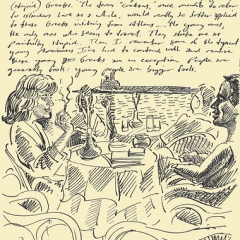 (stupid) Greeks. The term "cretins," once meant to refer
to islanders here as a whole, would really be better applied
to these Greeks visiting from Athens. The young ones,
the only ones who seem to travel. They strike me as
painfully stupid. Then I remember some of the typical
young Americans I've had to contend with and wonder
these young Greeks are an exception. People are
generally fools: young people are bigger fools.